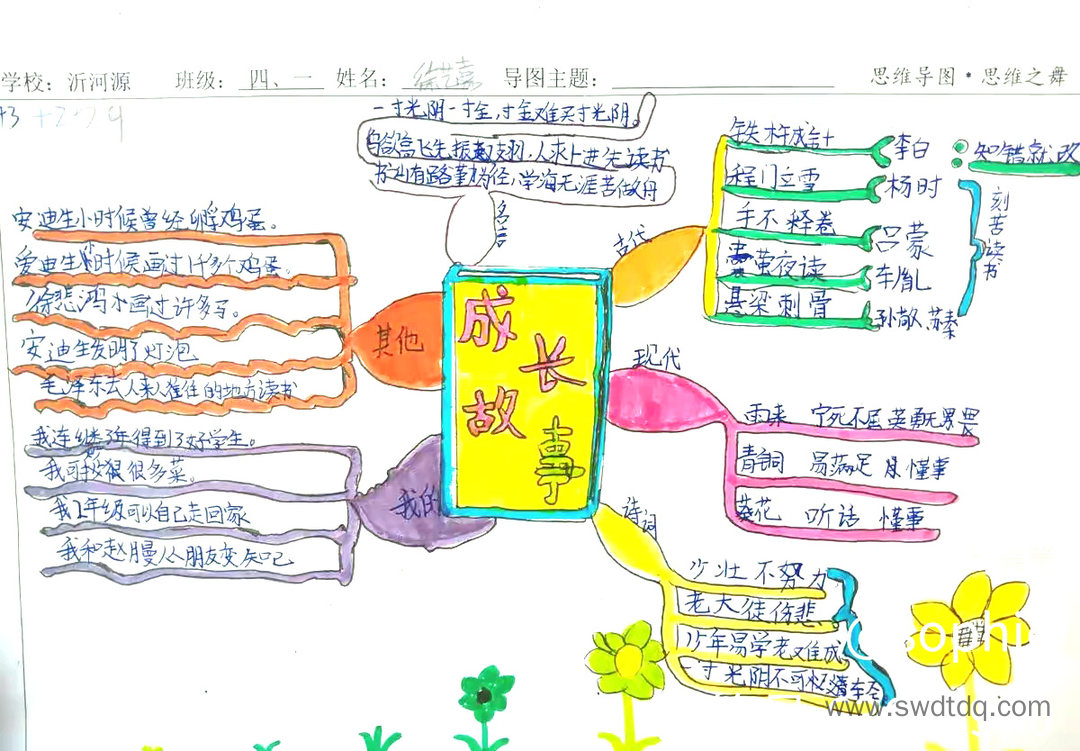 学校：沂河源 班级：四、一 姓名：徐艺嘉 导图主题：
思维导图·思维之舞
一寸光阴一寸金，寸金难买寸光阴。
鸟欲高飞先振翅，人求上进先读书
书山有路勤为径，学海无涯苦做舟
名言
成长故事
古代
铁杵成针 李白 知错就改
程门立雪 杨时
手不释卷 吕蒙
囊萤夜读 车胤
悬梁刺骨 孙敬、苏秦
刻苦读书
现代
雨来 宁死不屈 英勇无畏
青铜 易满足 懂事
葵花 听话 懂事
诗词
少壮不努力
老大徒伤悲
少年易学老难成
一寸光阴不可轻
其他
安迪生小时候曾经孵鸡蛋。
爱迪生小时候画过1千多个鸡蛋。
徐悲鸿小画过许多马。
安迪生发明了灯泡
毛泽东去人来人往的地方读书
我的
我连继3年得到了好学生。
我可找很很多菜。
我2年级可以自己走回家
我和赵月曼从朋友变知己
www.swdtdq.com